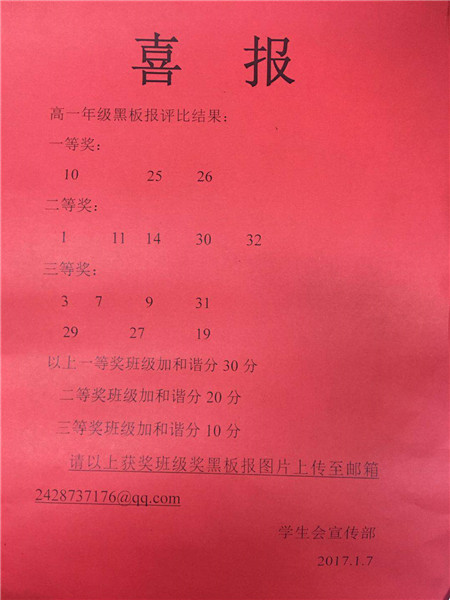 喜 报
高一年级黑板报评比结果：
一等奖：
10 25 26
二等奖：
1 11 14 30 32
三等奖：
3 7 9 31
29 27 19
以上一等奖班级加和谐分 30 分
二等奖班级加和谐分 20 分
三等奖班级加和谐分 10 分
请以上获奖班级奖黑板报图片上传至邮箱
2428737176@qq.com
学生会宣传部
2017.1.7